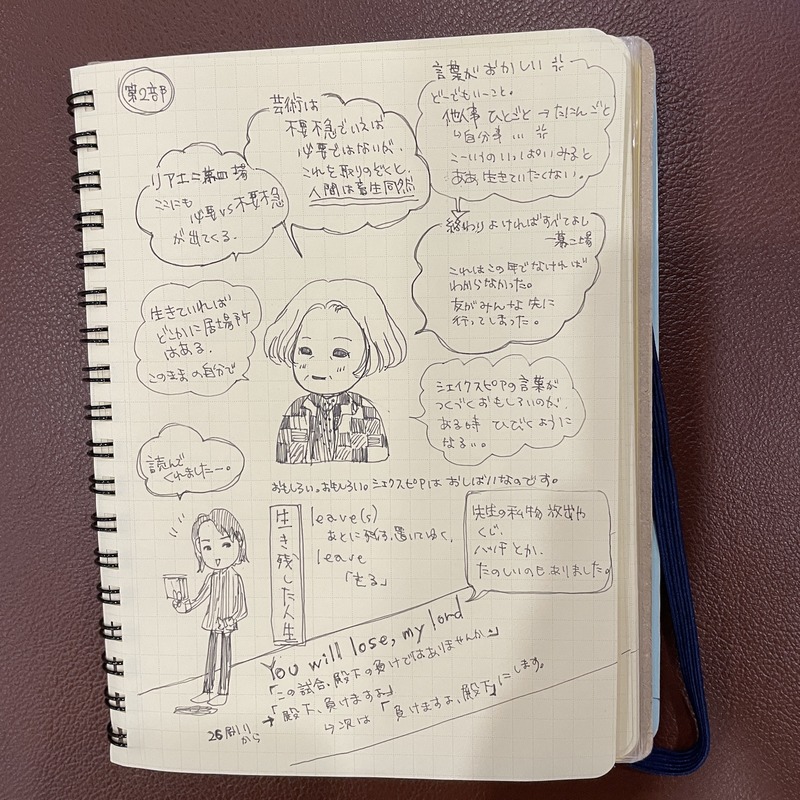 第2部
芸術は
不要不急でいえば
必要とはないが、
これを取りのぞくと、
人間は畜生同然
言葉がおかしい
どーでもいーこと。
他人事 ひとごと → たにんごと
↳自分事…
こーいうのいっぱいみると
ああ生きていたくない。
リア王二幕四場
ここにも
必要vs不要不急
が出てくる。
終わりよければすべてよし
一幕二場
これはこの年でなければ
わからなかった。
友がみんな先に
行ってしまった。
生きていれば
どこかに居場所
はある。
このままの自分で
シェイクスピアの言葉が
つくづくおもしろいのが、
ある時 ひびくように
なる…。
読んで
くれましたー。
おもしろい。おもしろい。シェクスピアは おしばいなのです。
生き残した人生
leave(s)
あとに残る、置いてゆく。
leave
「去る」
先生の私物放出や
くじ、
バッヂとか、
たのしいのもありました。
You will lose, my lord
「この試合、殿下の負けではありませんか」
→「殿下、負けますよ」
↳次は「負けますよ、殿下」にします。
26刷り
から